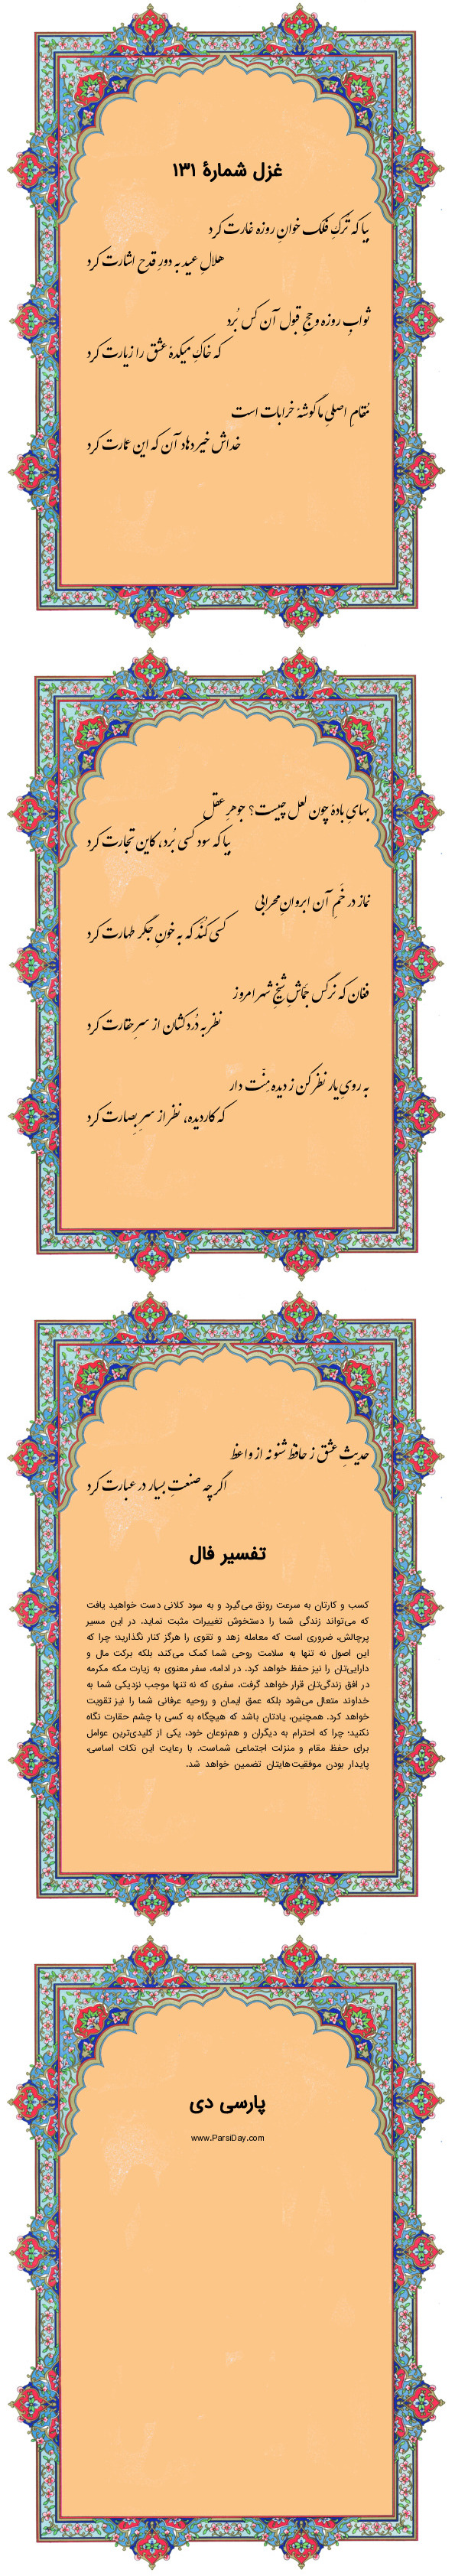 غزل شمارهٔ ۱۳۱
بیا که تُرکِ فلک خوانِ روزه غارت کرد
هلالِ عید به دورِ قدح اشارت کرد
ثوابِ روزه و حجِ قبول آن کس بُرد
که خاکِ میکدهٔ عشق را زیارت کرد
مُقامِ اصلیِ ما گوشهٔ خرابات است
خداش خیر دهاد آن که این عمارت کرد
بهایِ بادهٔ چون لعل چیست؟ جوهرِ عقل
بیا که سود کسی بُرد، کاین تجارت کرد
نماز در خَمِ آن ابروانِ محرابی
کسی کُنَد که به خونِ جگر طهارت کرد
فغان که نرگسِ جَمّاشِ شیخِ شهر امروز
نظر به دُردکشان از سرِ حقارت کرد
به رویِ یار نظر کن ز دیده مِنَّت دار
که کاردیده، نظر از سرِ بِصارت کرد
حدیثِ عشق ز حافظ شنو نه از واعظ
اگر چه صنعتِ بسیار در عبارت کرد
تفسیر فال
کسب و کارتان به سرعت رونق می‌گیرد و به سود کلانی دست خواهید یافت
که می‌تواند زندگی شما را دستخوش تغییرات مثبت نماید. در این مسیر
پرچالش، ضروری است که معامله زهد و تقوی را هرگز کنار نگذارید؛ چرا که
این اصول نه تنها به سلامت روحی شما کمک می‌کند، بلکه برکت مال و
دارایی‌تان را نیز حفظ خواهد کرد. در ادامه، سفر معنوی به زیارت مکه مکرمه
در افق زندگی‌تان قرار خواهد گرفت، سفری که نه تنها موجب نزدیکی شما به
خداوند متعال می‌شود بلکه عمق ایمان و روحیه عرفانی شما را نیز تقویت
خواهد کرد. همچنین، یادتان باشد که هیچگاه به کسی با چشم حقارت نگاه
نکنید؛ چرا که احترام به دیگران و هم‌نوعان خود، یکی از کلیدی‌ترین عوامل
برای حفظ مقام و منزلت اجتماعی شماست. با رعایت این نکات اساسی،
پایدار بودن موفقیت‌هایتان تضمین خواهد شد.
پارسی دی
www.ParsiDay.com